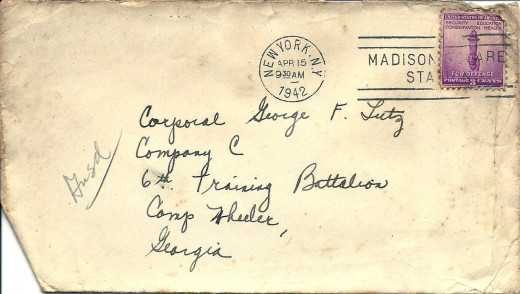 NEW YORK, N.Y.
APR 15
9 30 AM
1942
MADISON ARE
STA
UNITED STATES OF AMERICA
SECURITY EDUCATION
CONSERVATION HEALTH
FOR DEFENSE
POSTAGE 3 CENTS
Corporal George F. Lutz
Company C
6th. Training Battalion
Camp Wheeler,
Georgia